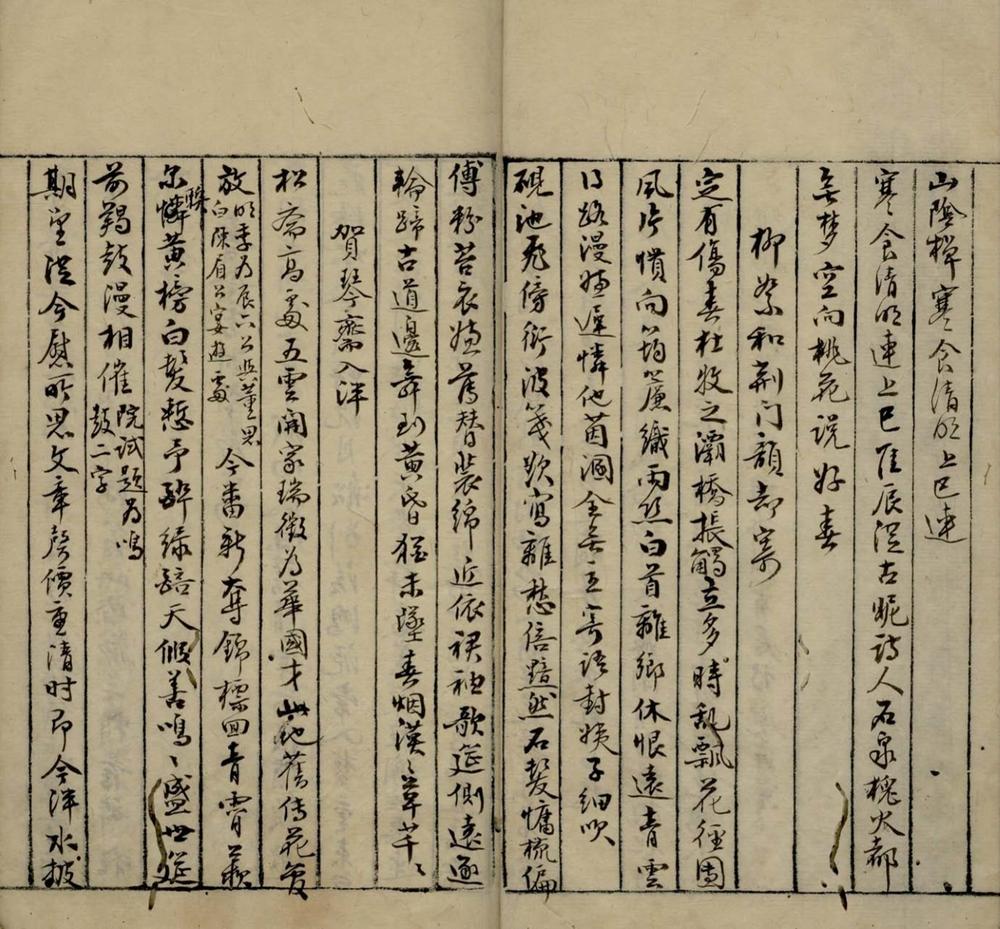 山陰樿寒食清明上巳連
寒食清明連上巳佳辰從古昵詩人石泉槐火都
無夢空向桃花說好春
柳絮和荊門韻却寄
定有傷春杜牧之灞橋振觸立多時亂飄花徑團
風片慣向筠簾織雨絲白首離鄉休恨遠青雲
得路漫嫌遲憐他茵溷全無主寄語封姨子細吹
硯池飛傍衍波箋欲寫離愁倍黯然石髮慵梳偏
傅粉苔衣嫌舊替裝綿近依裙衩歌筵側遠逐
輪蹄古道邊舞到黃昏猶未墜春烟漠漠草芊芊
賀琴齋入泮
松齋高處五雲開家瑞徵為華國才此地舊傳花萼
放明季為辰六公與董思
白陳眉公宴遊處今番新奪錦標回青霄蘋
尔憐黃榜白髮慙予醉綠醅天假善鳴鳴盛世筵
前羯鼓漫相催院試題為鳴
鼓二字
期望從今慰所思文章聲價重清時即今泮水披